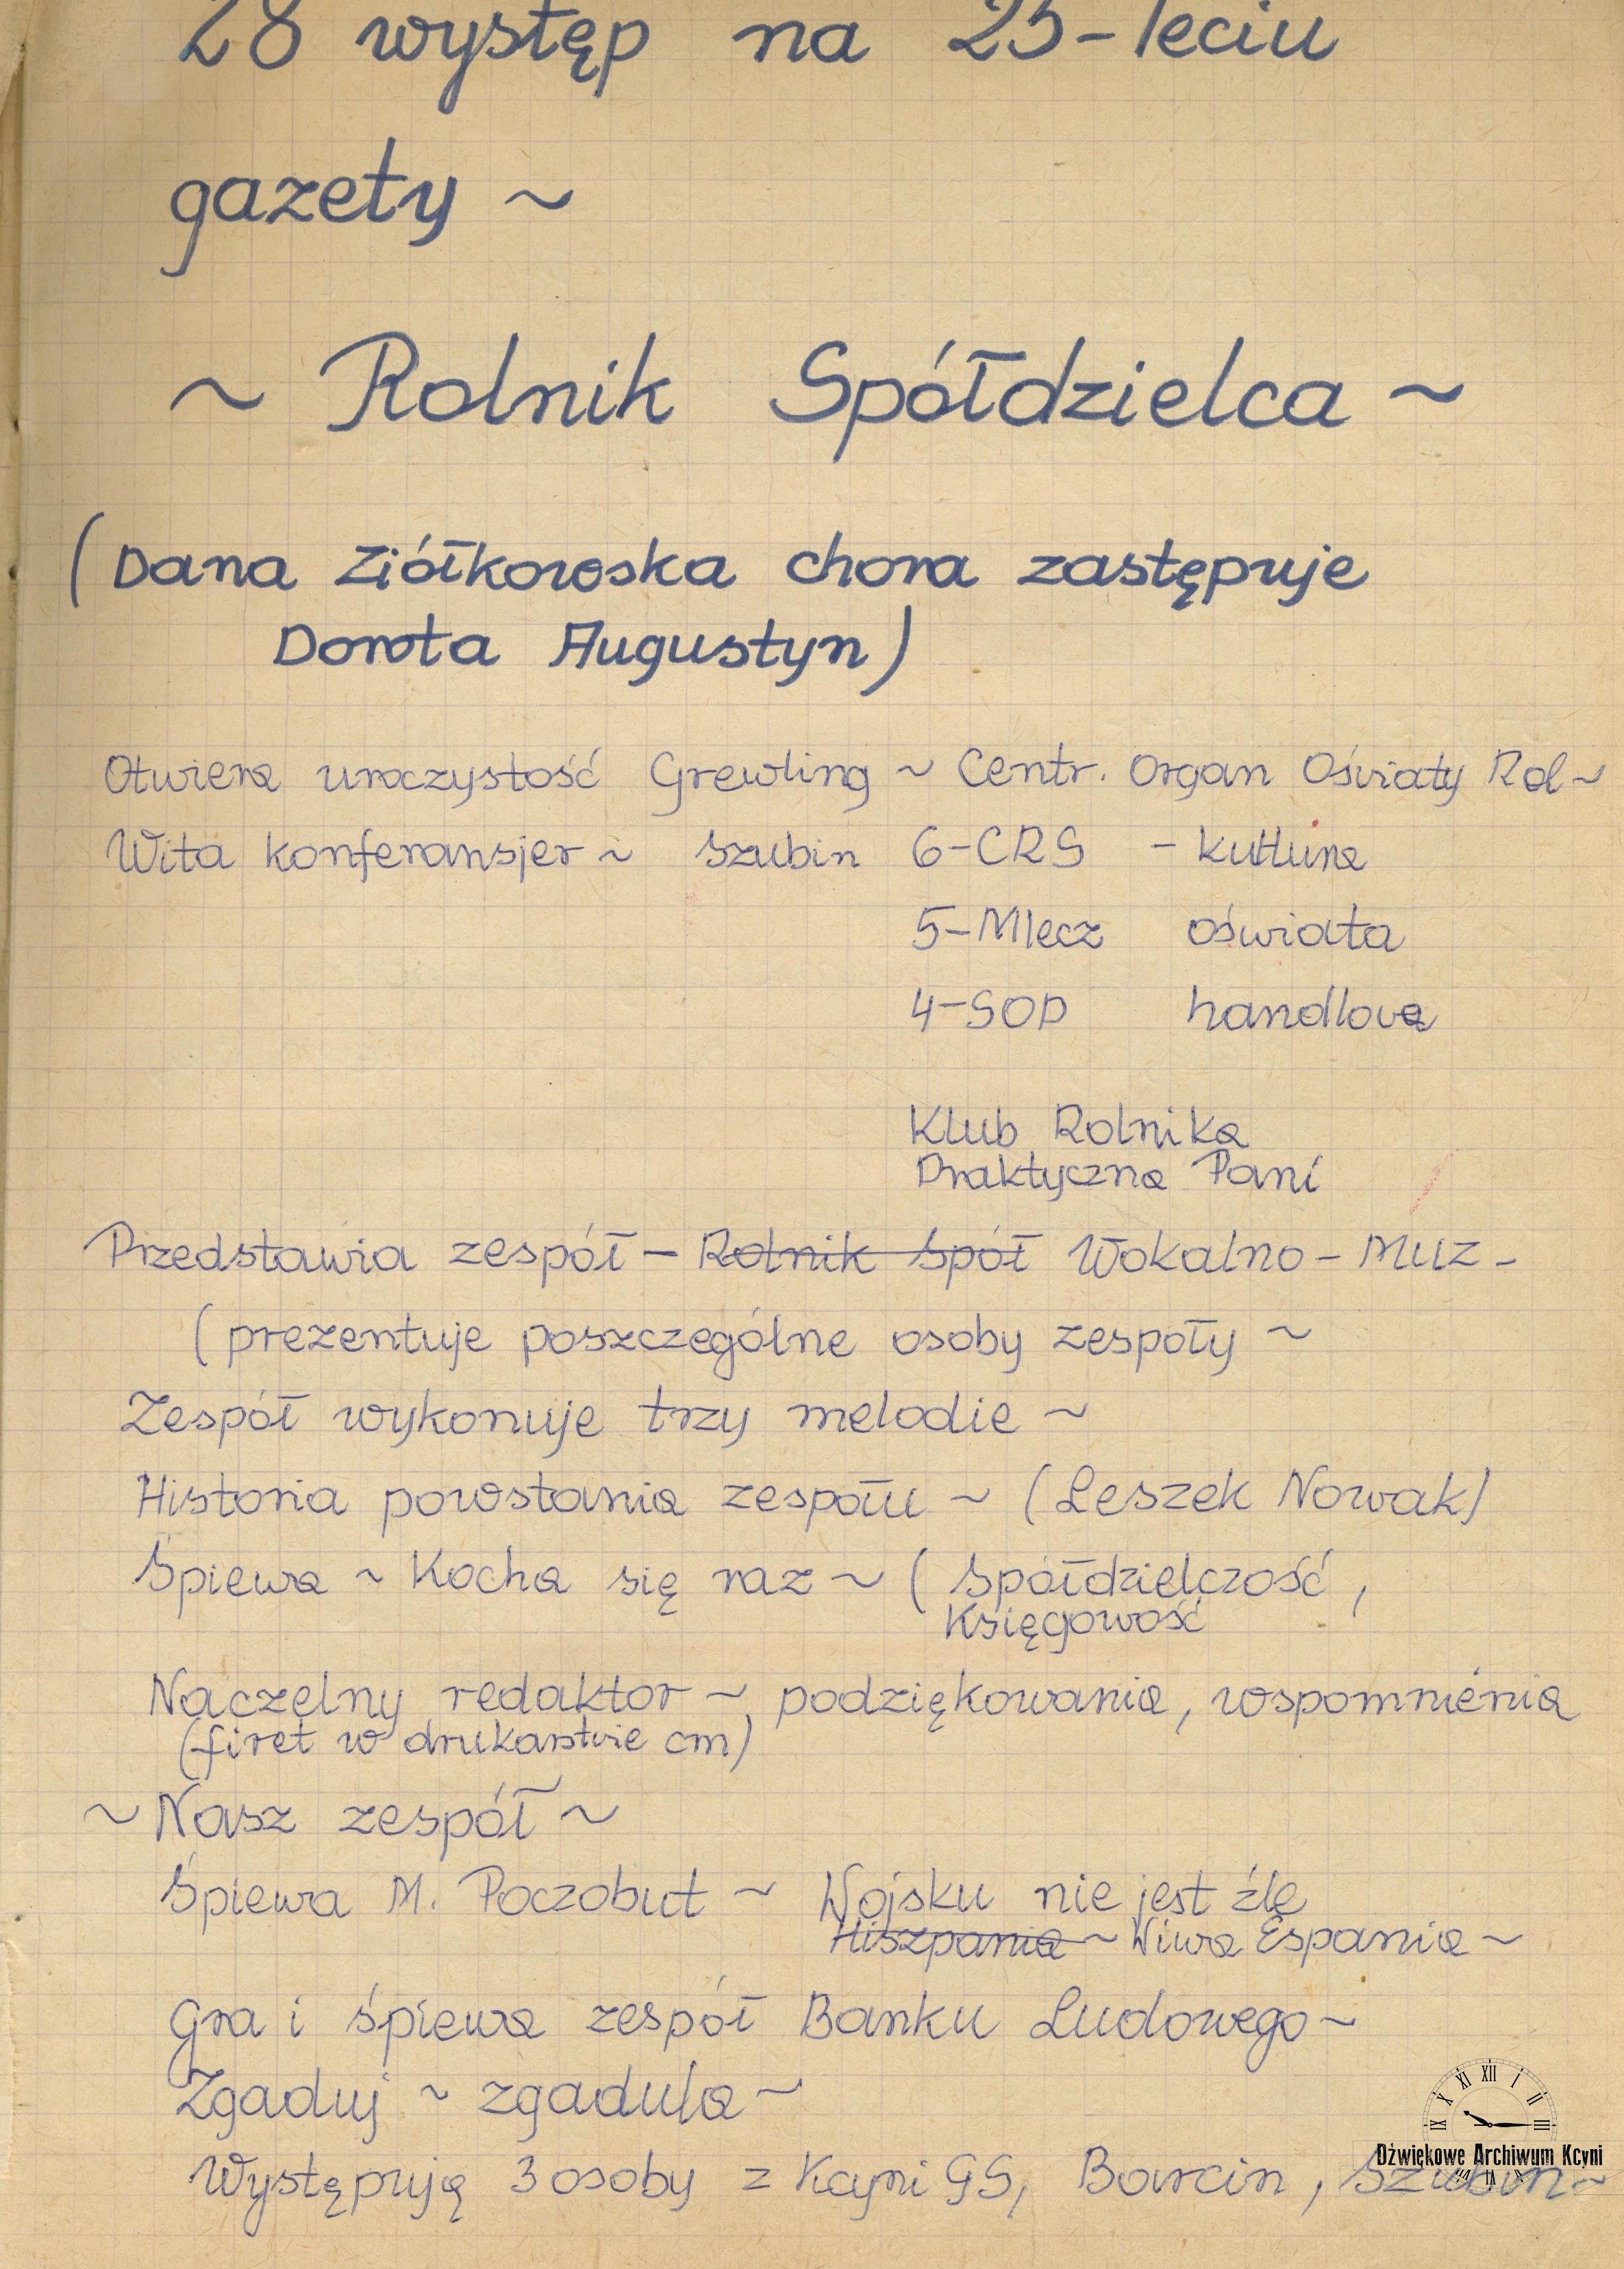 28 występ na 25-leciu
gazety ~
~ Rolnik Spółdzielca ~
(Dana Ziółkowska chora zastępuje
Dorota Augustyn)
Otwiera uroczystość Grewling ~ Centr. Organ Oświaty Rol~
Wita konferansjer ~ Szubin 6-CRS - kultura
5-Mlecz oświata
4-SOP handlowa
Klub Rolnika
Praktyczna Pani
Przedstawia zespół - Rolnik Spół Wokalno - Muz -
(prezentuje poszczególne osoby zespoły ~
Zespół wykonuje trzy melodie ~
Historia powstania zespołu ~ (Leszek Nowak)
Śpiewa ~ Kocha się raz ~ (Spółdzielczość,
Księgowość
Naczelny redaktor ~ podziękowania, wspomnienia
(firet w drukarstwie cm)
~ Nasz zespół ~
Śpiewa M. Poczobut ~ Wojsku nie jest źle
Hiszpania ~ Wiwa Espania ~
Gra i śpiewa zespół Banku Ludowego ~
Zgaduj ~ zgadula ~
Występują 3 osoby z Kcyni GS, Barcin, Szubin ~
Dźwiękowe Archiwum Kcyni